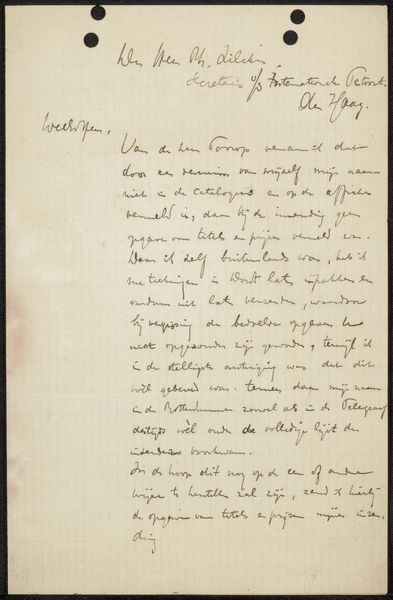 Den Heer Ph. Zilcken
Secretaris v/d Internationale Tentoonst.
Den Haag.
Weledelen,
Van den heer Toorop vernam ik dat
door een verzuim van mijzelf mijn naam
niet in de Catalogus en op de affiche
vermeld is, daar bij de inzending geen
opgave van titels en prijzen vermeld was.
Daar ik zelf buitenlands was, heb ik
mijn teekeningen in Dordt laten inpakken en
vandaar uit laten verzenden, waardoor
bij vergissing de bedoelde opgaven
niet opgezonden zijn geworden, terwijl ik
in de stelligste overtuiging was dat dit
wèl gebeurd was. temeer daar mijn naam
in de Rotterdammer zoowel als in de Telegraaf
destijds wèl onder de volledige lijst der
inzenders voorkwam.
In de hoop dit nog op de een of andere
wijze te herstellen zal zijn, zend ik hierbij
de opgave van titels en prijzen mijner inzen-
ding